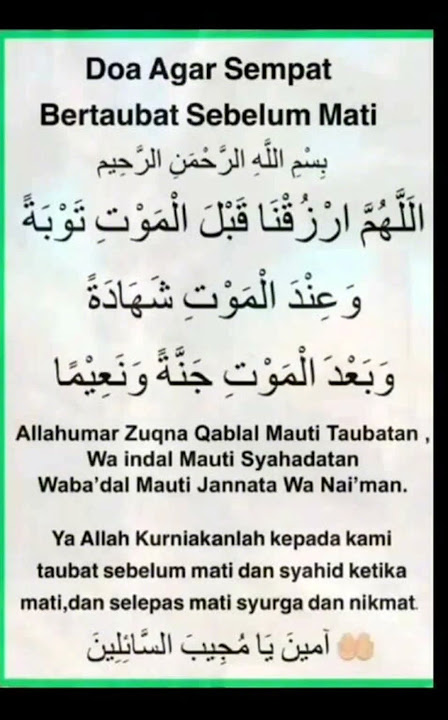 Doa Agar Sempat
Bertaubat Sebelum Mati
بِسْمِ اللَّهِ الرَّحْمَنِ الرَّحِيمِ
اَللَّهُمَّ ارْزُقْنَا قَبْلَ الْمَوْتِ تَوْبَةً
وَعِنْدَ الْمَوْتِ شَهَادَةً
وَبَعْدَ الْمَوْتِ جَنَّةً وَنَعِيْمًا
Allahumar Zuqna Qablal Mauti Taubatan ,
Wa indal Mauti Syahadatan
Waba’dal Mauti Jannata Wa Nai’man.
Ya Allah Kurniakanlah kepada kami
taubat sebelum mati dan syahid ketika
mati,dan selepas mati syurga dan nikmat.
آمينَ يَا مُجِيبَ السَّائِلِينَ 🤲🏼